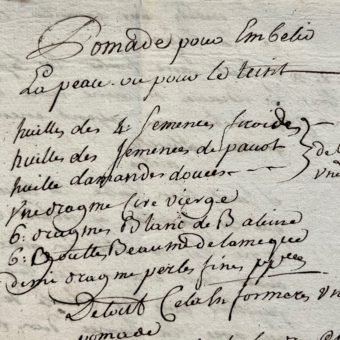 Pomade pour Embelir
La peau ou pour le teint
huilles des 4 semences froides
huilles des semences de pavot
huille damandes douces
de
vne dragme cire vierge
6: dragmes Blanc de Baleine
6: Goutles Beaume de lameque
demi dragme perles fines
De tout Cela Informeres vn
pomade